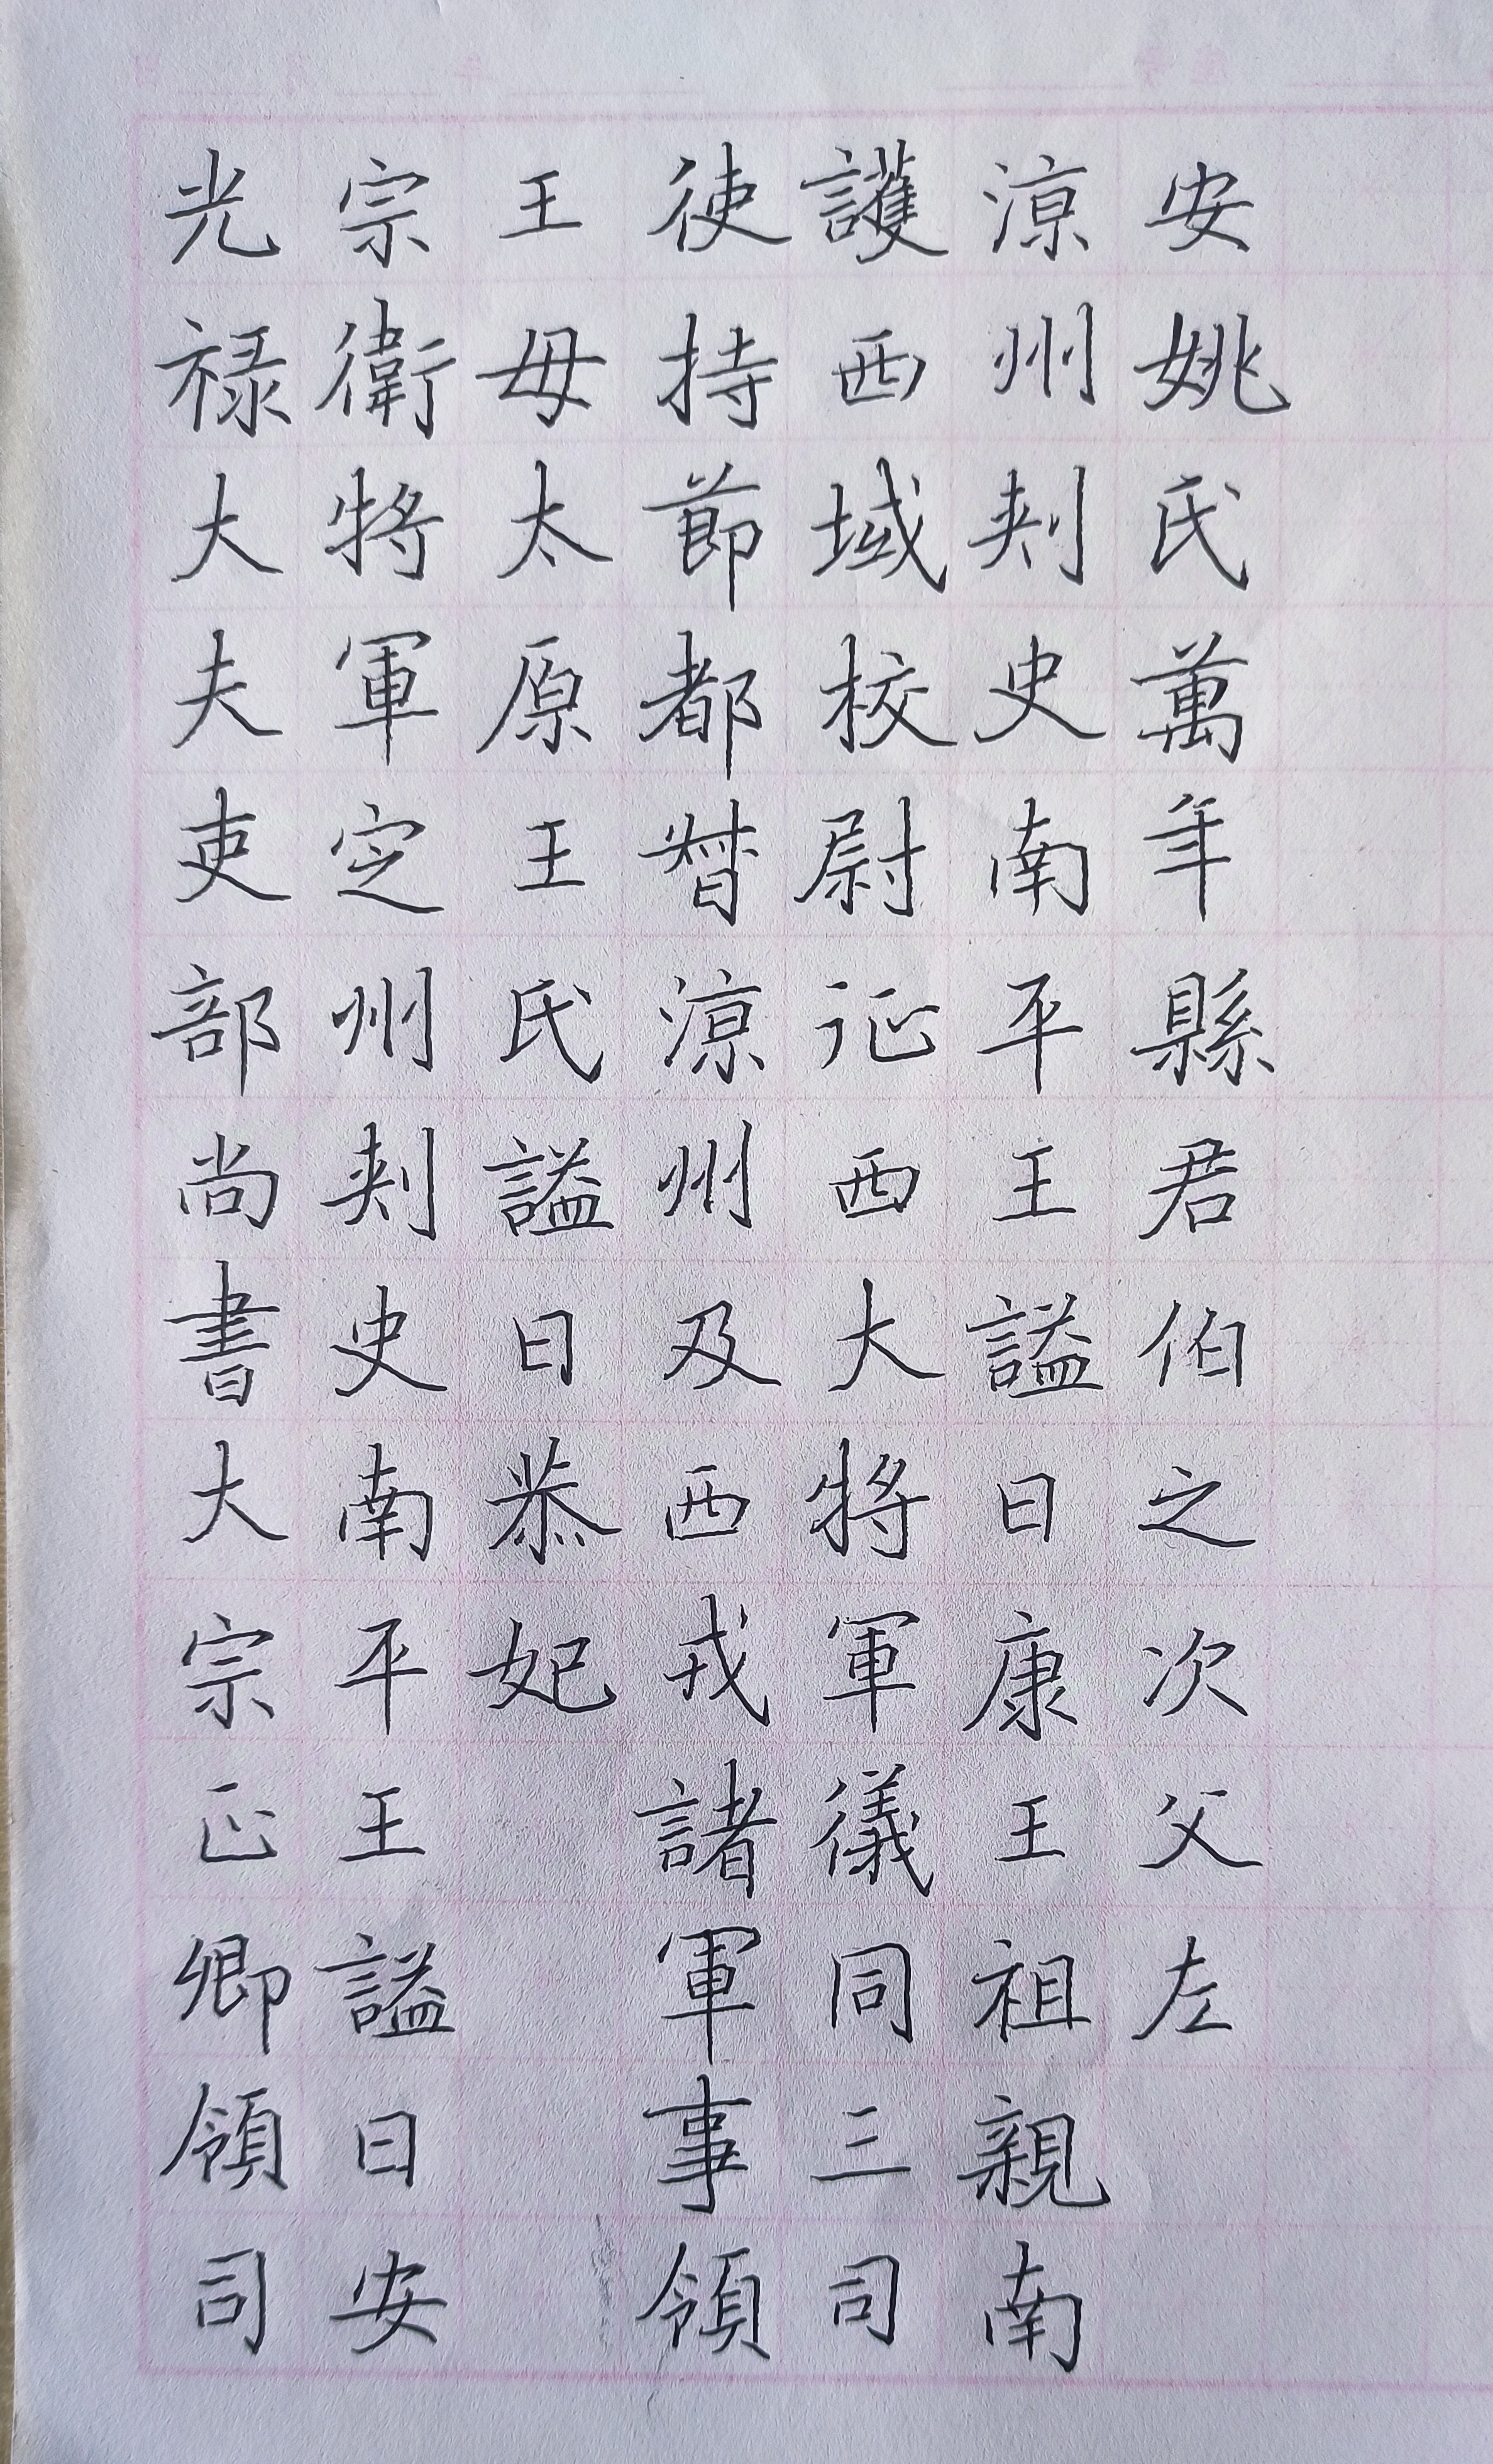 光禄大夫吏部尚書大宗正卿領司
宗衛將軍定州刺史南平王謚曰安
王母太原王氏謚曰恭妃
使持節都督涼州及西戎諸軍事領
護西域校尉征西大將軍儀同三司
涼州刺史南平王謚曰康王祖親南
安姚氏萬年縣君伯之次父左